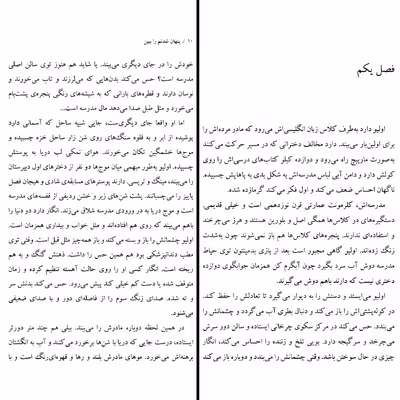 فصل یکم
اولیو دارد به‌طرف کلاس زبان انگلیسی‌اش می‌رود که مادر مرده‌اش را
برای اولین‌بار می‌بیند. دارد مخالف دخترانی که در مسیر حرکت می‌کنند
به‌صورت مارپیچ راه می‌رود و دوازده کیلو کتاب‌های درسی‌اش را روی
کولش دارد و دامن آبی لباس مدرسه‌اش به شکل بدی به پاهایش چسبیده.
ناگهان احساس ضعف می‌کند و اول فکر می‌کند گرمازده شده.
مدرسه‌اش، کلرمونت، عمارتی قرن نوزدهمی است و خیلی قدیمی.
دستگیره‌های در کلاس‌ها همگی اصل و بلورین هستند و هرز می‌چرخند
و استفاده‌ای ندارند. پنجره‌های کلاس‌ها هم باز نمی‌شوند چون به‌شدت
زنگ زده‌اند. اولیو گاهی مجبور است بعد از بازی بدمینتون توی حیاط
مدرسه دوش آب سرد بگیرد چون آبگرم کن همزمان جوابگوی دوازده
دختری نیست که دارند باهم دوش می‌گیرند.
اولیو می‌ایستد و دستش را به دیوار می‌گیرد تا تعادلش را حفظ کند.
در کوله‌پشتی‌اش را باز می‌کند و دنبال بطری آب می‌گردد و چشمانش را
می‌بندد. حس می‌کند در مرکز سکوی چرخانی ایستاده و سالن دور سرش
می‌چرخد و سرگیجه دارد. بویی تلخ و زننده را احساس می‌کند. انگار
چیزی در حال سوختن باشد. وقتی چشمانش را می‌بندد و دوباره باز می‌کند
۱۰ / پنهان شدنم را ببین
خودش را در جای دیگری می‌بیند. یا شاید هم هنوز توی سالن اصلی
مدرسه است؟ حس می‌کند بدن‌هایی که می‌لرزند و تاب می‌خورند و
نوسان دارند و قطره‌های بارانی که به شیشه‌های رنگی پنجره‌ی پشت‌بام
می‌خورد و مثل طبل صدا می‌دهد مال مدرسه است.
اما او واقعا جای دیگری‌ست، جایی شبیه ساحل که آسمانی دارد
پوشیده از ابر و به قلوه سنگ‌های روی شن زار ساحل خزه چسبیده و
موج‌ها خشمگین تکان می‌خورند. هوای نمکی لب دریا به پوستش
چسبیده. اولیو به‌طور مبهمی میان موج‌ها دو نفر از دخترهای اول دبیرستان
را می‌بیند، مینگ و تریسی. دارند پوسترهای مسابقه‌ی شادی و هیجان فصل
پاییز را می‌چسبانند. پشت شن‌های زیر و خشن ردیفی از قفسه‌های مدرسه
است و موج دریا به در ورودی مدرسه شلاق می‌زند. انگار دارد دو دنیا را
باهم می‌بیند که روی هم افتاده‌اند و مثل خواب و بیداری همزمان است.
اولیو چشمانش را باز و بسته می‌کند و باز همه‌چیز مثل قبل است. وقتی توی
مطب دندانپزشکی بود هم همین حس را داشت. ذهنش گنگ و به هم
ریخته است. انگار کسی او را روی حالت آهسته تنظیم کرده و زمان
متوقف شده یا دست کم خیلی کند پیش می‌رود. حس می‌کند بدنش سر
و ته شده. صدای زنگ سوم را از فاصله‌ای دور و با صدای ضعیفی
می‌شنود.
در همین لحظه دوباره مادرش را می‌بیند. بیلی هم چند متر دورتر
ایستاده، درست جایی که دریا با شن‌ها برخورد می‌کنند و آب به انگشتان
برهنه‌اش می‌خورد. موهای مادرش بلند و رها و قهوه‌ای‌رنگ است و با